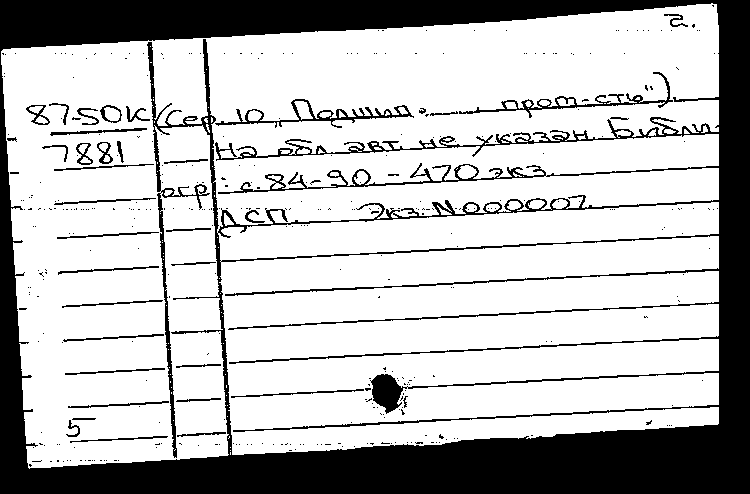 2.
87-50К (Сер. 10 „Подшип. прот-сть").
7881 На обл. авт. не указан. Библи-
огр.: с. 84-90 - 470 экз.
ДСП. Экз. N 000007.
5